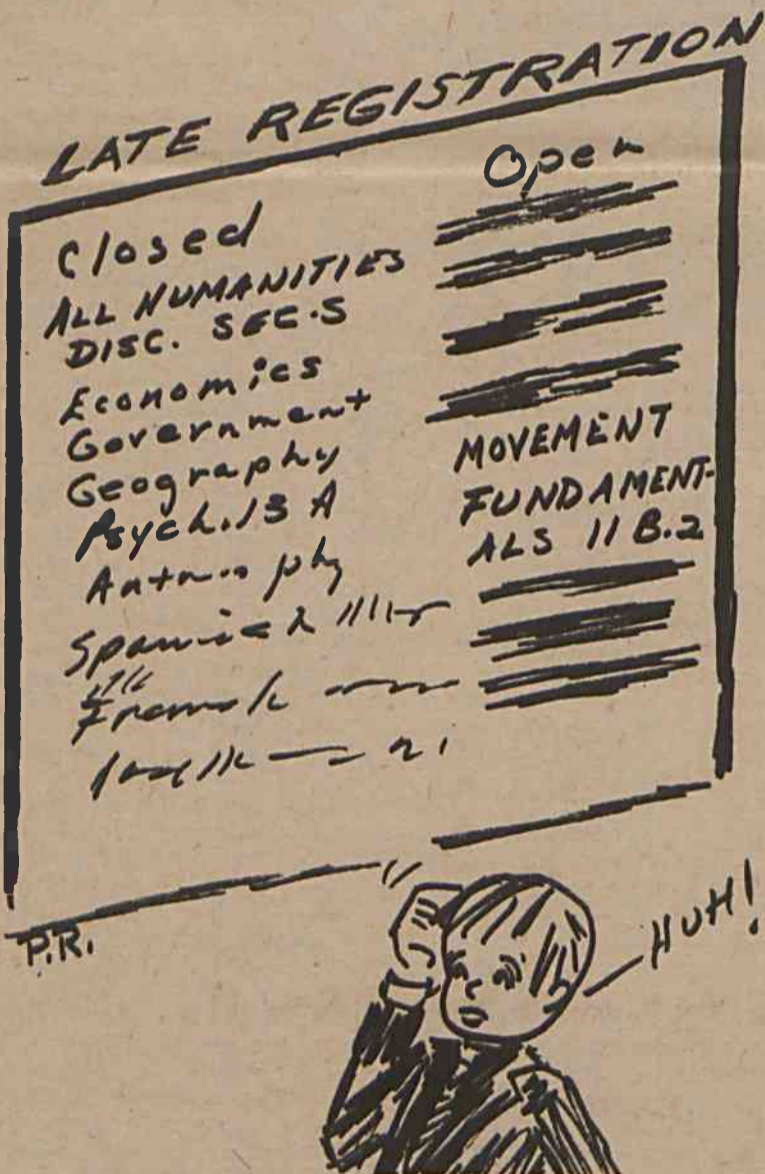 LATE REGISTRATION
Closed
ALL HUMANITIES
DISC. SEC.S
Economics
Government
Geography
Psych. 13 A
Spanish
Open
MOVEMENT
FUNDAMENT-
ALS 11 B.2
P.R.
HUH!